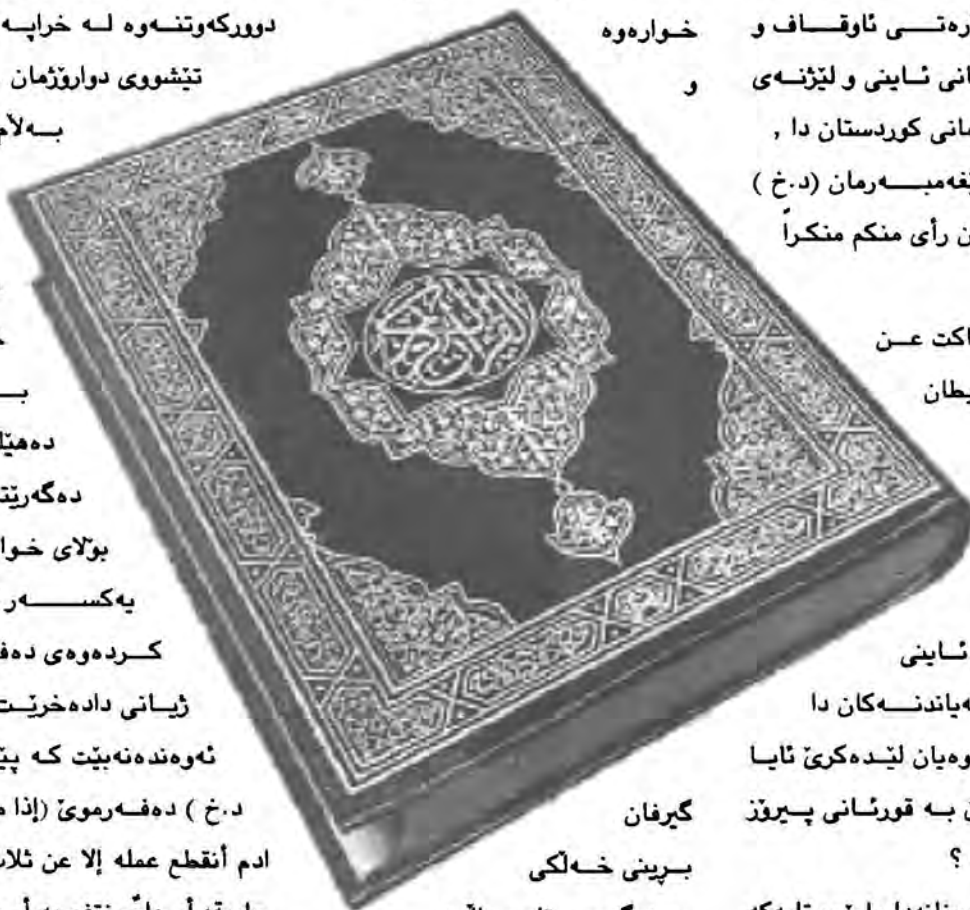 رەتــی ئاوقــاف و
انی ئـاینی و لێژنـەی
سانی کوردستان دا ,
ێغەمبــەرمان (د.خ )
ن رأی منکم منکـراً
اکت عــن
یطان
ئـاینی
ەیاندنــەکان دا
وەیان لێـدەکرێ ئایـا
ن بـە قورئـانی پـیرۆز
؟
خـوارەوە
و
گیرفان
بــڕینی خــەڵکی
دوورکەوتنــەوە لــە خراپــە
تێشووی دوارۆژمان
بــەڵام
بــ
دەهێڵ
دەگەڕێتـ
بۆلای خـوا
یەکســـەر
کــردەوەی دەف
ژیــانی دادەخرێــت
ئەوەندەنەبێت کـە پێ
د.خ ) دەفــەرموێ (إذا م
ادم أنقطع عملە إلا عن ثلاث